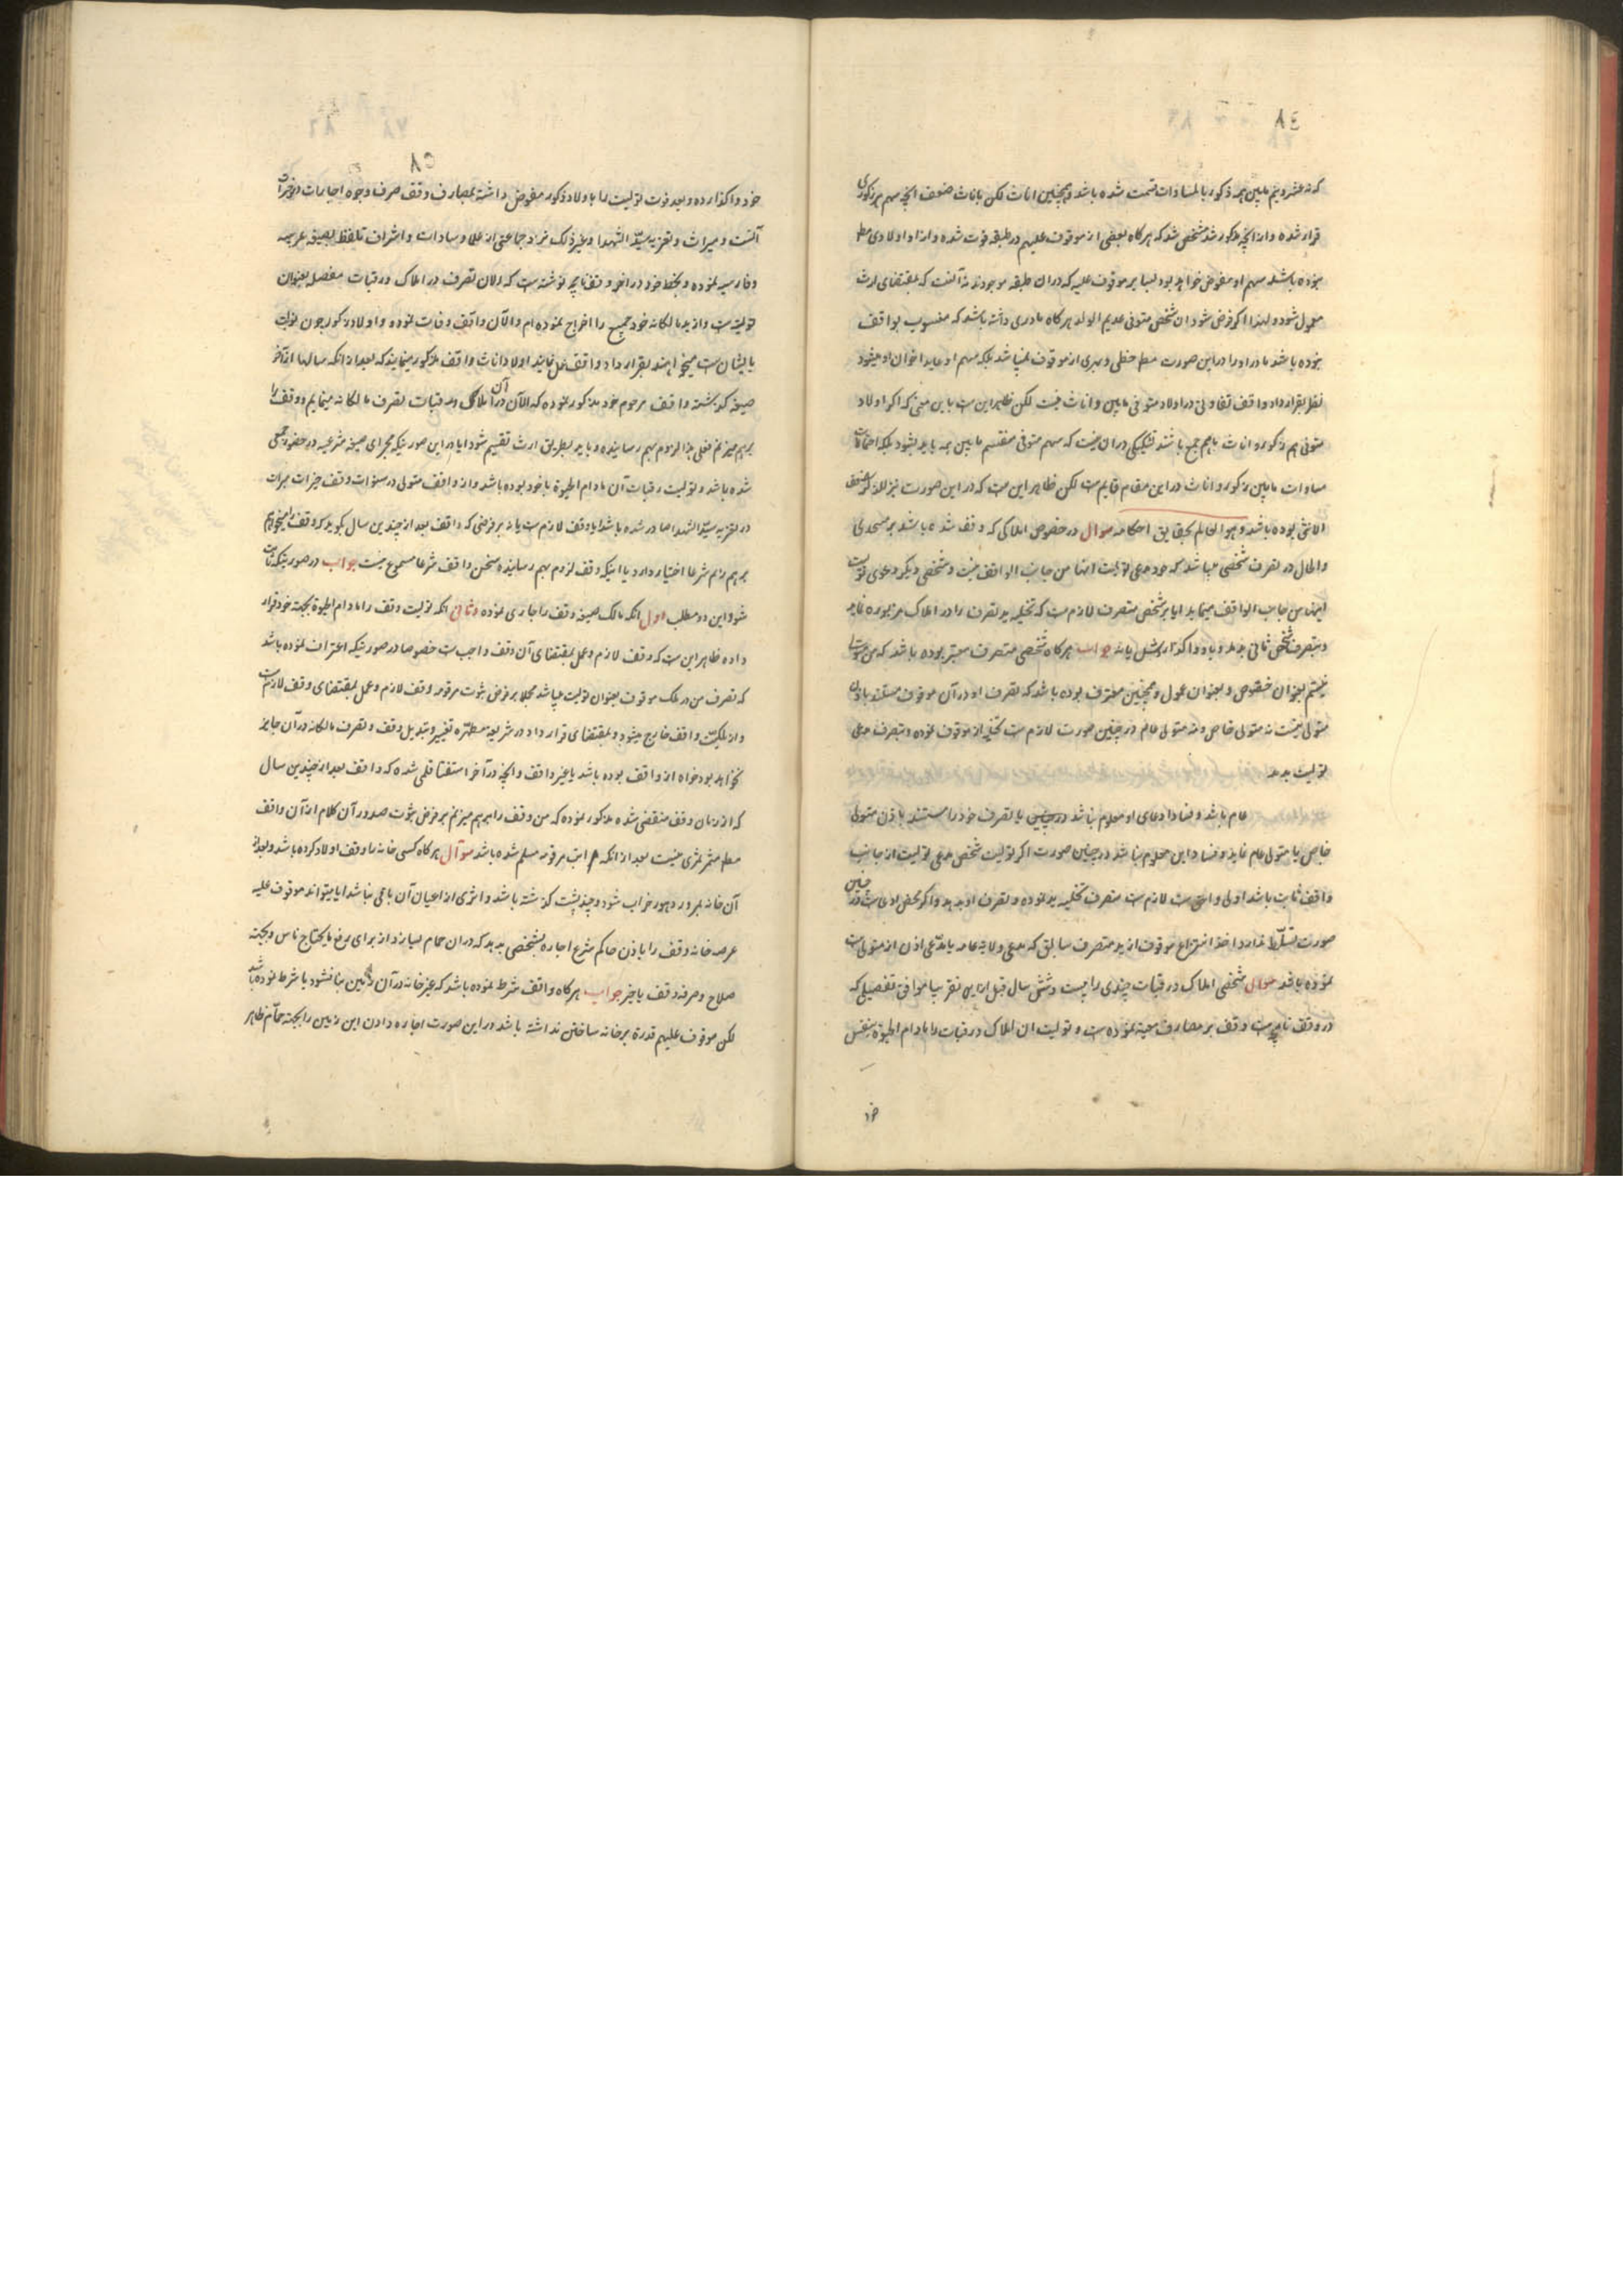 ٨٤
که نه عشر و نیم مابین همه ذکور بالمساوات قسمت شده باشد و همچنین اناث لکن باناث ضعف آنچه سهم هر ذکوری
قرار شده و از آنچه مذکور شد مشخص شد که هرگاه بعضی از موقوف علیهم در طبقه فوت شده و از او اولادی مط
نبوده باشد سهم او مفوض خواهد بود بسایر موقوف علیه که در ان طبقه موجودند نه آنست که بمقتضای ارث
معمول شود و لهذا اگر فرض شود ان شخص متوفی عدیم الولد هرگاه مادری داشته باشد که منسوب بواقف
نبوده باشد مادر او را در این صورت مط حظی و بهری از موقوف نمیباشد بلکه سهم او عاید اخوان او میشود
نظر بقرار داد واقف تفاوتی در اولاد متوفی مابین و اناث نیست لکن ظاهر این ست باین معنی که اگر اولاد
متوفی هم ذکور و اناث باهم جمع باشند تشکیکی در ان نیست که سهم متوفی منقسم مابین همه باید بشود بلکه احتمال
مساوات مابین ذکور و اناث در این مقام قایم ست لکن ظاهر این ست که در این صورت نیز للذکر ضعف
الانثی بوده باشد و هو العالم بحقایق احکامه سوال در خصوص املاکی که وقف شده باشد بر مسجدی
والحال در تصرف شخصی میباشد که خود مدعی تولیت انها من جانب الواقف نیست و شخصی دیگر دعوی تولیت
اینها من جانب الواقف مینماید ایا بر شخص متصرف لازم ست که تخلیه ید تصرف را در املاک مزبوره نماید
و بتصرف شخص ثانی بدهد و باو واگذارد یا نه جواب هرگاه شخصی متصرف معتبر بوده باشد که من متولی
نیستم بعنوان خصوص و بعنوان عموم و همچنین معترف بوده باشد که تصرف او در آن موقوف مستند باذن
متولی نیست نه متولی خاص و نه متولی عام در چنین صورت لازم ست تخلیه از موقوف نموده و بتصرف مدعی
تولیت بدهد
عام باشد و فساد ادعای او معلوم نباشد در چنین یا تصرف خود را مستند باذن متولی
خاص یا متولی عام نماید و فساد این معلوم نباشد در چنین صورت اگر تولیت شخص مدعی تولیت از جانب
واقف ثابت باشد اولی و احق ست لازم ست متصرف تخلیه ید نموده و تصرف او بدهد و اگر محض ادعی ست در چنین
صورت تسلط ندارد اخذ انتزاع موقوف از ید متصرف سابق که مدعی ولایة عامه یا مدعی اذن از متولی ست
نموده باشد سوال شخصی املاک و رقبات چندی را بیست و شش سال قبل از این تقریبا موافق تفصیلی که
در وقف نامچه ست وقف بر مصارف معینه نموده ست و تولیت ان املاک و رقبات را مادام الحیوة بنفس
خو
٨٥
خود واگذارده و بعد فوت تولیت را باولاد ذکور مفوض داشته بمصارف وقف صرف وجوه اجارات
آنست و میراث و تعزیه سید الشهدا و غیر ذلک نزد جماعتی از علما و سادات و اشراف تلفظ بصیغه عربیه
و فارسیه نموده و بخط خود در انجه وقفنامچه نوشته ست که الان تصرف در املاک و رقبات مفصل بعنوان
تولیت ست و از ید مالکانه خود جمیع را اخراج نموده ام و الآن واقف وفات نموده و اولاد ذکور چون تولیت
با ایشان ست میخواهند بقرار داد واقف عمل نمایند اولاد اناث واقف مذکور مینمایند که بعد از انکه سالها از آخر
صیغه گذشته واقف مرحوم خود مذکور نموده که الآن در آن املاک و رقبات تصرف مالکانه مینمایم و وقف را
برهم میزنم فعلی هذا لزوم بهم رسانیده و باید بطریق ارث تقسیم شود ایا در این صورتیکه مجرای صیغه شرعیه در حضور جمعی
شده باشد و تولیت رقبات آن مادام الحیوة باخود بوده باشد و از واقف متولی در سنوات وقف خیرات مبرات
در تعزیه سید الشهدا صادر شده باشد ایا وقف لازم ست یا نه بر فرضی که واقف بعد از چندین سال بگوید که وقف را میخواهم
برهم زنم شرعا اختیار دارد یا اینکه وقف لزوم بهم رسانیده سخن واقف شرعا مسموع نیست جواب در صورتیکه ثابت
شود این دو مطلب اول انکه مالک صیغه وقف را جاری نموده و ثانی انکه تولیت وقف را مادام الحیوة بجهت خود قرار
داده ظاهر این ست که وقف لازم و عمل بمقتضای آن وقف واجب ست خصوصا در صورتیکه اعتراف نموده باشد
که تصرف من در ملک موقوف بعنوان تولیت میباشد مجملا بر فرض ثبوت مرقومه وقف لازم و عمل بمقتضای وقف لازم ست
و از ملکیت واقف خارج میشود و بمقتضای قرار داد در شریعه مطهره تغییر و تبدیل وقف و تصرف مالکانه در آن جایز
نخواهد بود خواه از واقف بوده باشد یا غیر واقف و آنچه در آخر استفتا قلمی شده که واقف بعد از چندین سال
که از زمان وقف منقضی شده مذکور نموده که من وقف را برهم میزنم بر فرض ثبوت صدور آن کلام از آن واقف
مط مثمر ثمری نیست بعد از انکه مراتب مرقومه مسلم شده باشد سوال هرگاه کسی خانه را وقف اولاد کرده باشد و بعد از
آن خانه بمرور دهور خراب شود و چند پشت گذشته باشد و اثری از اعیان آن باقی نباشد ایا میتواند موقوف علیه
عرصه خانه وقف را باذن حاکم شرع اجاره بشخصی بدهد که در ان حمام بسازد از برای رفع مایحتاج ناس و بجهته
صلاح و صرفه وقف یا خیر جواب هرگاه واقف شرط نموده باشد که غیر خانه در آن زمین بنا نشود یا شرط نموده باشد
لکن موقوف علیهم قدرة بر خانه ساختن نداشته باشد در این صورت اجاره دادن این زمین را بجهته حمام ظاهر